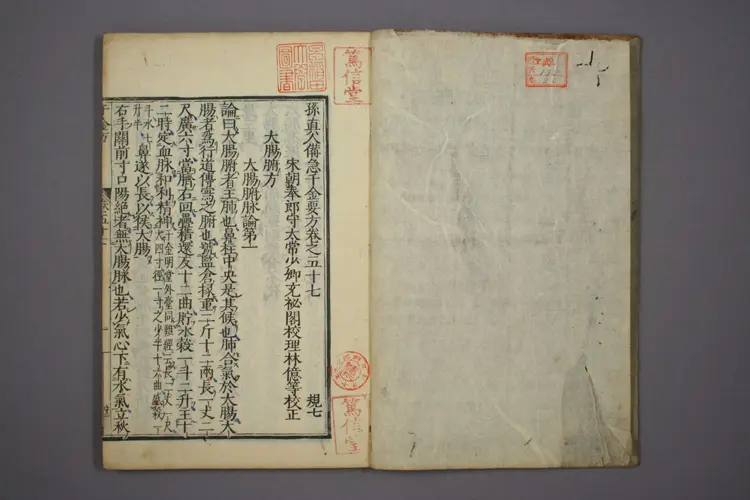 孫真人備急千金要方卷之五十七
規七
宋朝奉郎守太常少卿充祕閣校理林億等校正
大腸腑方
大腸腑脉論第一
論曰大腸腑者主肺也鼻柱中央是其候也肺合氣於大腸大
腸者爲行道傳瀉之腑也號監倉掾重二斤十二兩長一丈二
尺廣六寸當臍右迴疊積還反十二曲貯水穀一斗二升主十
二時定血脉和利精神
鼻隧以長以候大腸
右手關前寸口陽絕者無大腸脉也若少氣心下有水氣立秋
篤信堂
篤信堂
圖書